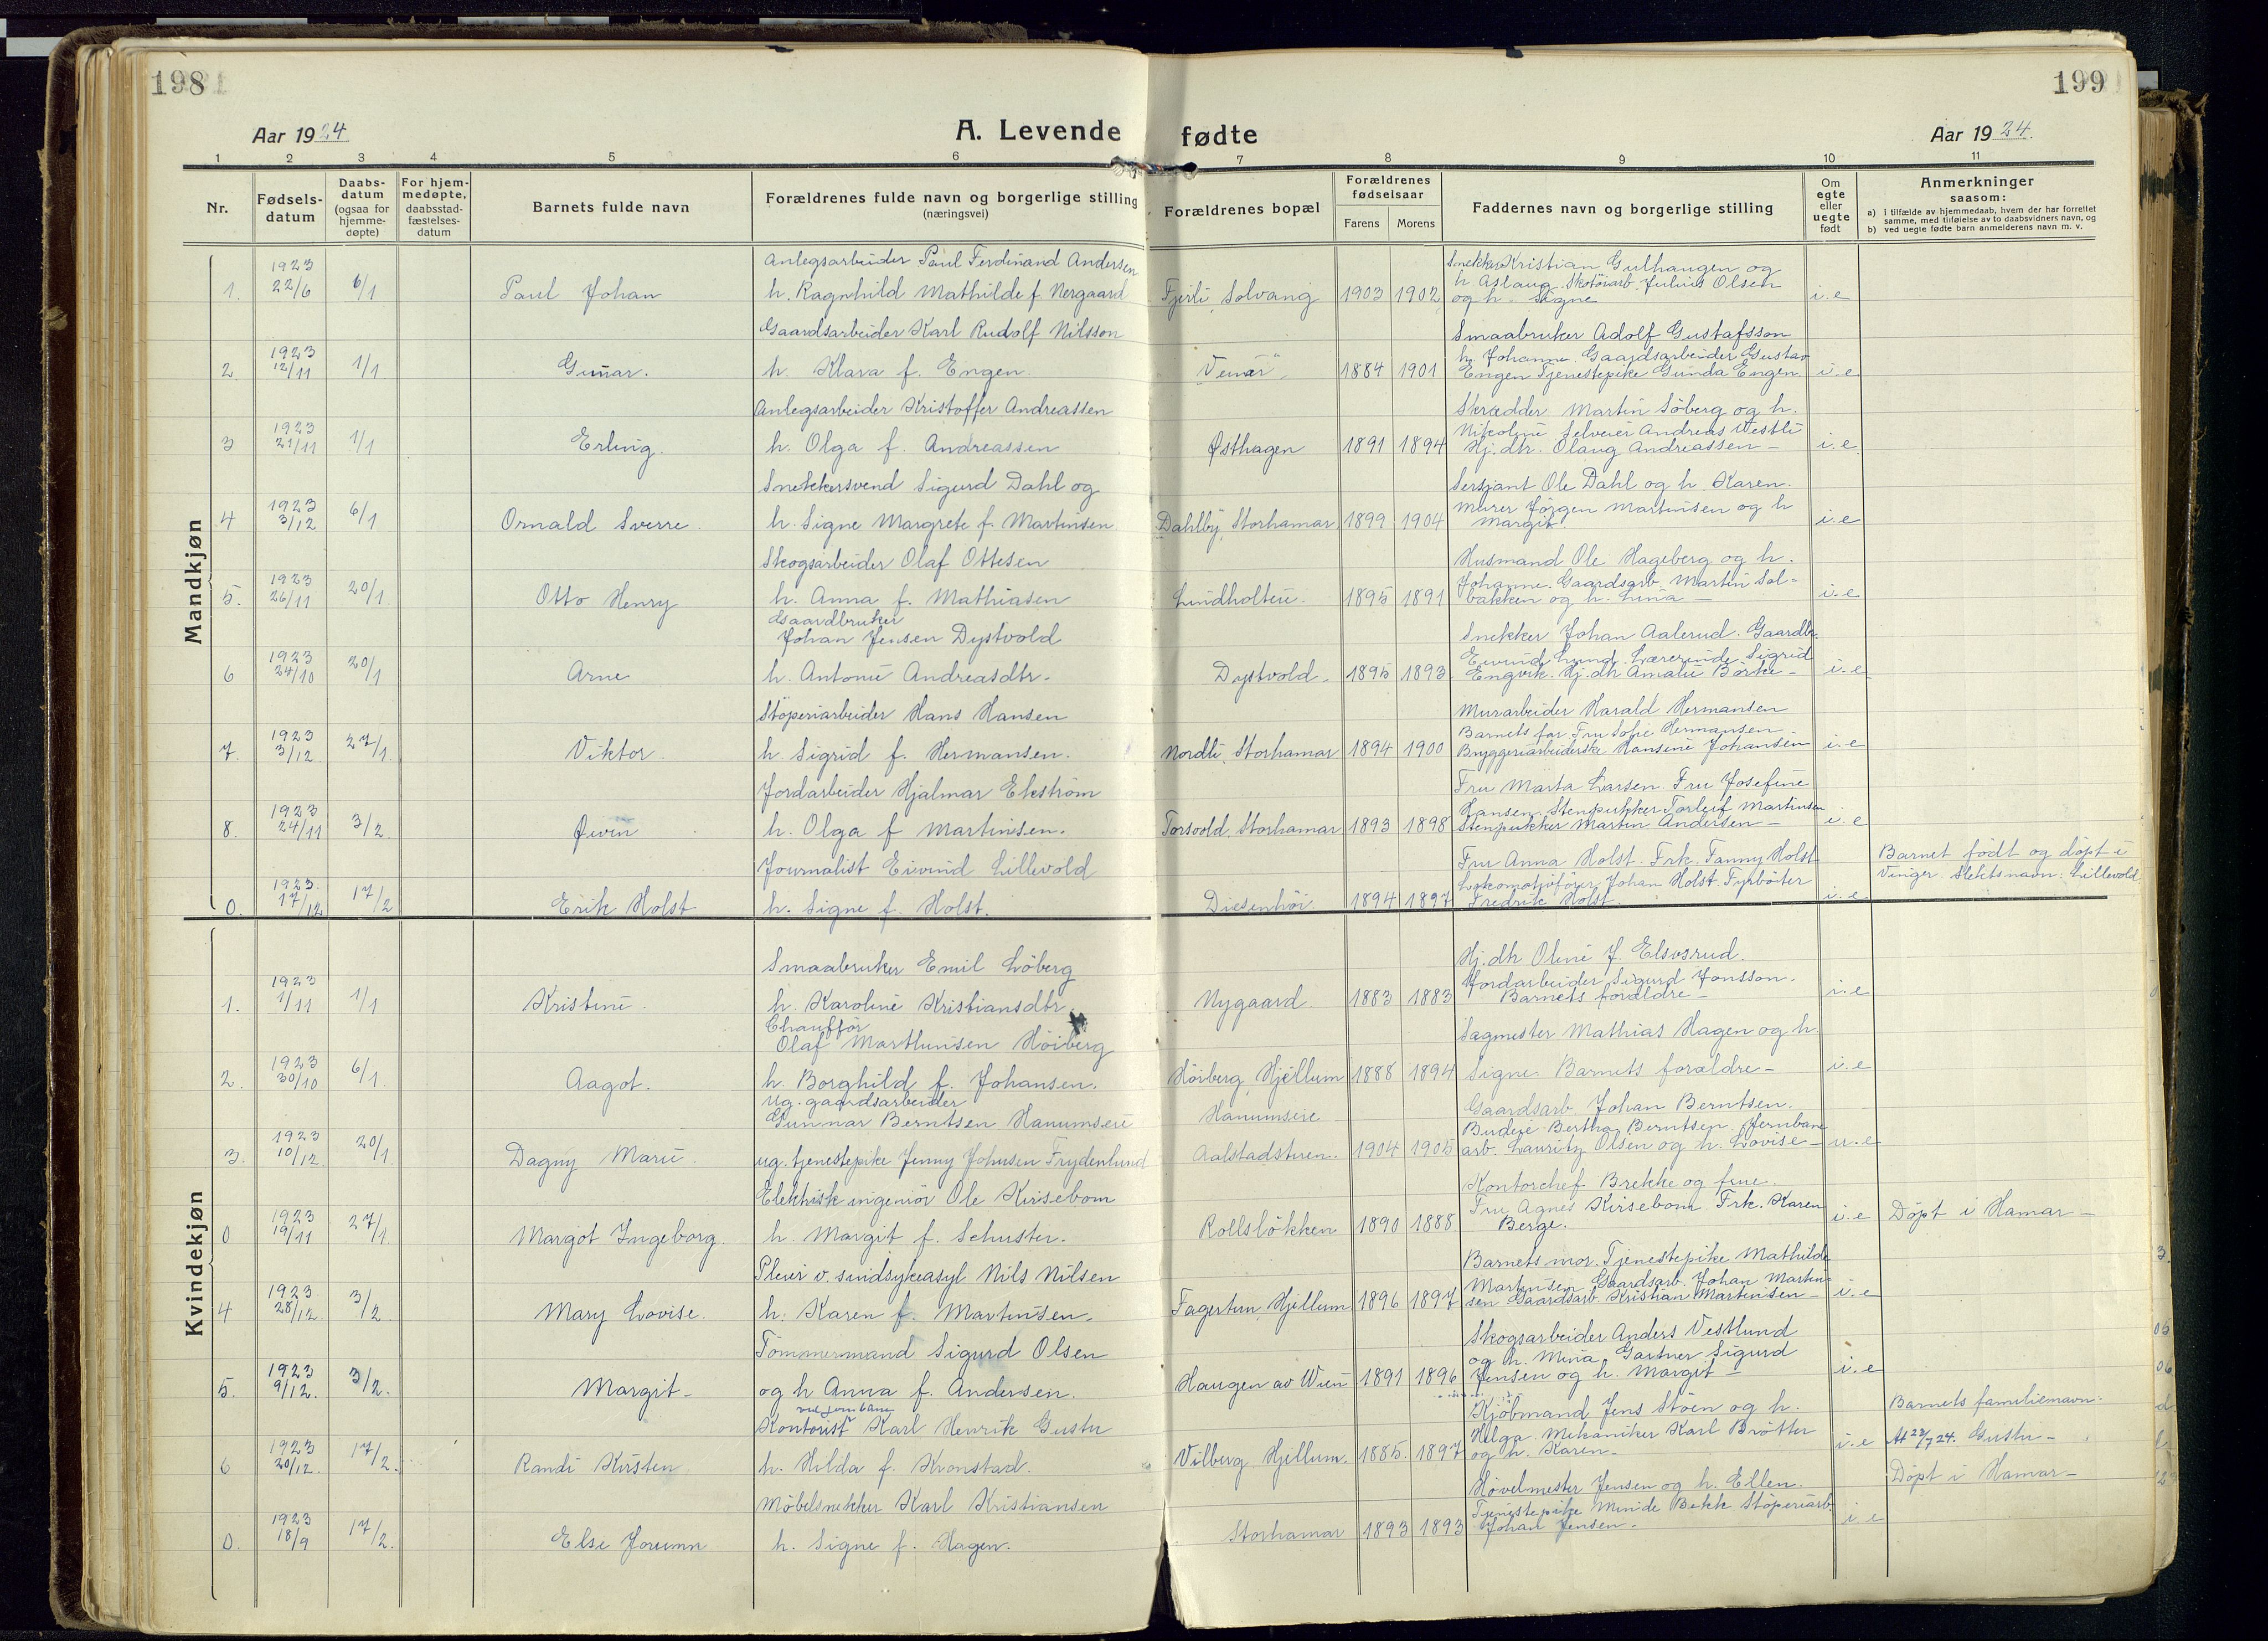 198
199
Aar 1924
A. Levende fødte
Aar 1924.
1 2 3 4 5 6 7 8 9 10 11
Nr.
Fødsels-datum
Daabs-datum (ogsaa for hjemme-døpte)
For hjem-medøpte, daabsstad-fæstelses-datum
Barnets fulde navn
Forældrenes fulde navn og borgerlige stilling (næringsvei)
Forældrenes bopæl
Forældrenes fødselsaar
Farens Morens
Faddernes navn og borgerlige stilling
Om egte eller uegte født
Anmerkninger saasom:
a) i tilfælde av hjemmedaab, hvem der har forrettet samme, med tilføielse av to daabsvidners navn, og
b) ved uegte fødte barn anmelderens navn m. v.
Mandkjøn
1. 1923 22/6 6/1 Paul Johan
Anlegsarbeider Paul Ferdinand Andersen
h. Ragnhild Mathilde f. Nergaard
Fjeili, Solvang 1903 1902
Snekker Kristian Gulhaugen og
h. Aslaug. Skotöiarb. Julius Olsen
og h. Signe
i.e
2 1923 12/11 1/1 Gunar.
Gaardsarbeider Karl Rudolf Nilsson
h. Klara f. Engen.
1884 1901
Smaabruker Adolf Gustafsson
h. Johanne. Gaardsarbeider Gustav
Engen Tjenestepike Gunda Engen
i.e
3 1923 21/11 1/1 Erling.
Anlegsarbeider Kristoffer Andreassen
h. Olga f. Andreassen
Østhagen 1891 1894
Skrædder Martin Söberg og h.
Nikoline Selveier Andreas Westli
Hj.dtr. Olaug Andreassen -
i.e
4 1923 3/12 6/1 Ornald Sverre.
Snekkersvend Sigurd Dahl og
h. Signe Margrete f. Martinsen
Dahlby, Storhamar 1899 1904
Sersjant Ole Dahl og h Karen.
Murer Jörgen Martinsen og h
Margit.
i.e
5. 1923 26/11 20/1 Otto Henry
Skogsarbeider Olaf Ottesen
h. Anna f. Mathiasen
Lindholten. 1895 1891
Husmand Ole Hageberg og h.
Johanne. Gaardsarb. Martin Sol=
bakken og h. Lina -
i.e
6 1923 24/10 20/1 Arne
Gaardbruker
Johan Jensen Dystvold
h. Antonie Andreasdtr.
Dystvold. 1895 1893
Snekker Johan Aalerud. Gaardbr.
Eivind Lund. Lærerinde Sigrid
Engvik. Hj.dtr Amalie Börke -
i.e
7. 1923 3/12 27/1 Viktor.
Stöperiarbeider Hans Hansen
h. Sigrid f. Hermansen.
Nordli, Storhamar 1894 1900
Murarbeider Harald Hermansen
Barnets far Fru Sofie Hermansen
Bryggeriarbeiderske Hansine Johansen
i.e
8. 1923 24/11 3/2 Øivin
Jordarbeider Hjalmar Ekström
h. Olga f Martinsen.
Torsvold, Storhamar 1893 1898
Fru Marta Larsen. Fru Josefine
Hansen. Stenpukker Torleif Martinsen
Stenpukker Martin Andersen -
i.e
0. 1923. 17/12 17/2 Erik Holst
Journalist Eivind Lillevold
h. Signe f. Holst.
Diesenhöi. 1894 1897
Fru Anna Holst. Frk. Fanny Holst
Lokomotivförer Johan Holst. Fyrböter
Fredrik Holst.
i.e
Barnet födt og döpt i
Vinger. Slektsnavn: Lillevold
Kvindekjøn
1. 1923 1/11 1/1 Kristine.
Smaabruker Emil Löberg
h. Karoline Kristiansdtr
Nygaard 1883 1883
Hj.dtr Oline J. Elsvsrud.
Jordarbeider Sigurd Jonsson.
Barnets foreldre -
i.e
2. 1923 30/10 6/1 Aagot.
Chaufför
Olaf Marthinsen Höiberg
h. Borghild f. Johansen.
Höiberg, Hjellum 1888 1894
Sagmester Mathias Hagen og h
Signe. Barnets foreldre -
i.e
3. 1923 10/12 20/1 Dagny Marie
ug. gaardsarbeider
Gunnar Berntsen Hanumseie
ug. tjenestepike Jenny Johnsen Frydenlund
Hanumseie
Aalstadstuen. 1904 1905
Gaardsarb. Johan Berntsen.
Budeie Bertha Berntsen. Jernbane
arb. Lauritz Olsen og h. Lovise -
u.e
0 1923 19/11 27/1 Margot Ingeborg.
Elektrisk ingeniör Ole Kirsebom
h. Margit f. Schuster.
Rollslökken 1890 1888
Kontorchef Brekke og frue.
Fru Agnes Kirsebom Frk. Karen
Berge.
i.e Döpt i Hamar -
4 1923 28/12. 3/2. Mary Lovise.
Pleier v. sindsykeasyl Nils Nilsen
h. Karen f. Martinsen.
Fagertun, Hjellum 1896 1897
Barnets mor. Tjenestepike Mathilde
Martinsen. Gaardsarb. Johan Martin=
sen Gaardsarb. Kristian Martinsen -
i.e
5. 1923 9/12. 3/2. Margit -
Tömmermand Sigurd Olsen
og h Anna f. Andersen.
Haugen av Wien 1891 1896
Skogsarbeider Anders Vestlund
og h. Mina, Gartner Sigurd
Jensen og h. Margit -
i.e
6 1923 20/12. 17/2. Randi Kirsten
ved jernbane
Kontorist Karl Henrik Gustu
h. Hilda f. Kronstad.
Vilberg Hjellum. 1885. 1897
Kjöbmand Jens Stöen og h.
Helga. Mekaniker Karl Bröttu
og h. Karen -
i.e
Barnets familienavn:
At 23/7 24. Gustu -
0. 1923 18/9 17/2. Else Jorunn
Möbelsnekker Karl Kristiansen
h. Signe f. Hagen.
Storhamar 1893 1893
Hövelmester Jensen og h. Ellen.
Tjenestepike Minde Bekk Stöperiarb.
Johan Jensen.
i.e
Döpt i Hamar -